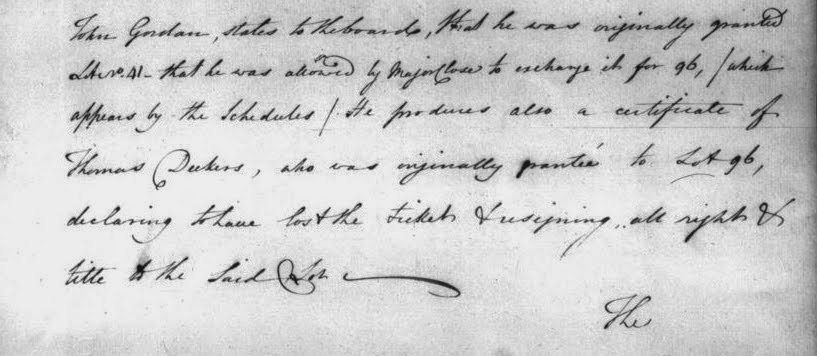 John Gordan, states to the board, that he was originally granted
Lot No. 41 - that he was allowed by Major Close to exchange it for 96, / which
appears by the Schedules / He produces also a certificate of
Thomas Deekers, who was originally grantée to Lot 96,
declaring to have lost the ticket & resigning all right &
title to the Said Lot
The